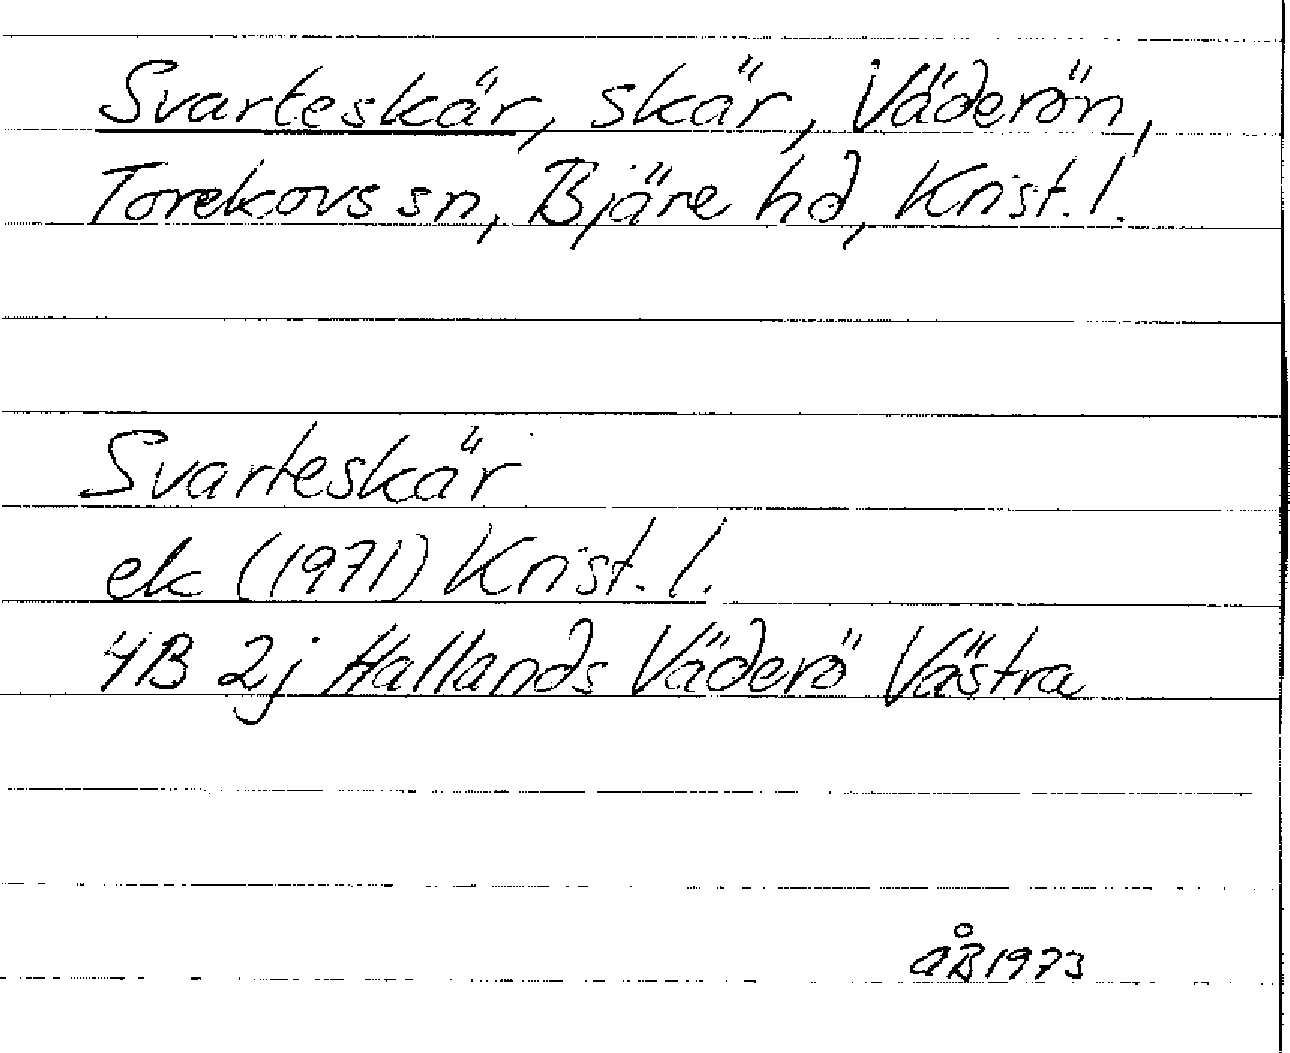 Svarteskär, skär, Väderön,
Torekovs sn, Bjäre hd, Krist. l.
Svarteskär
ek (1971) Krist. l.
4B 2j Hallands Väderö Västra
ÅB 1973